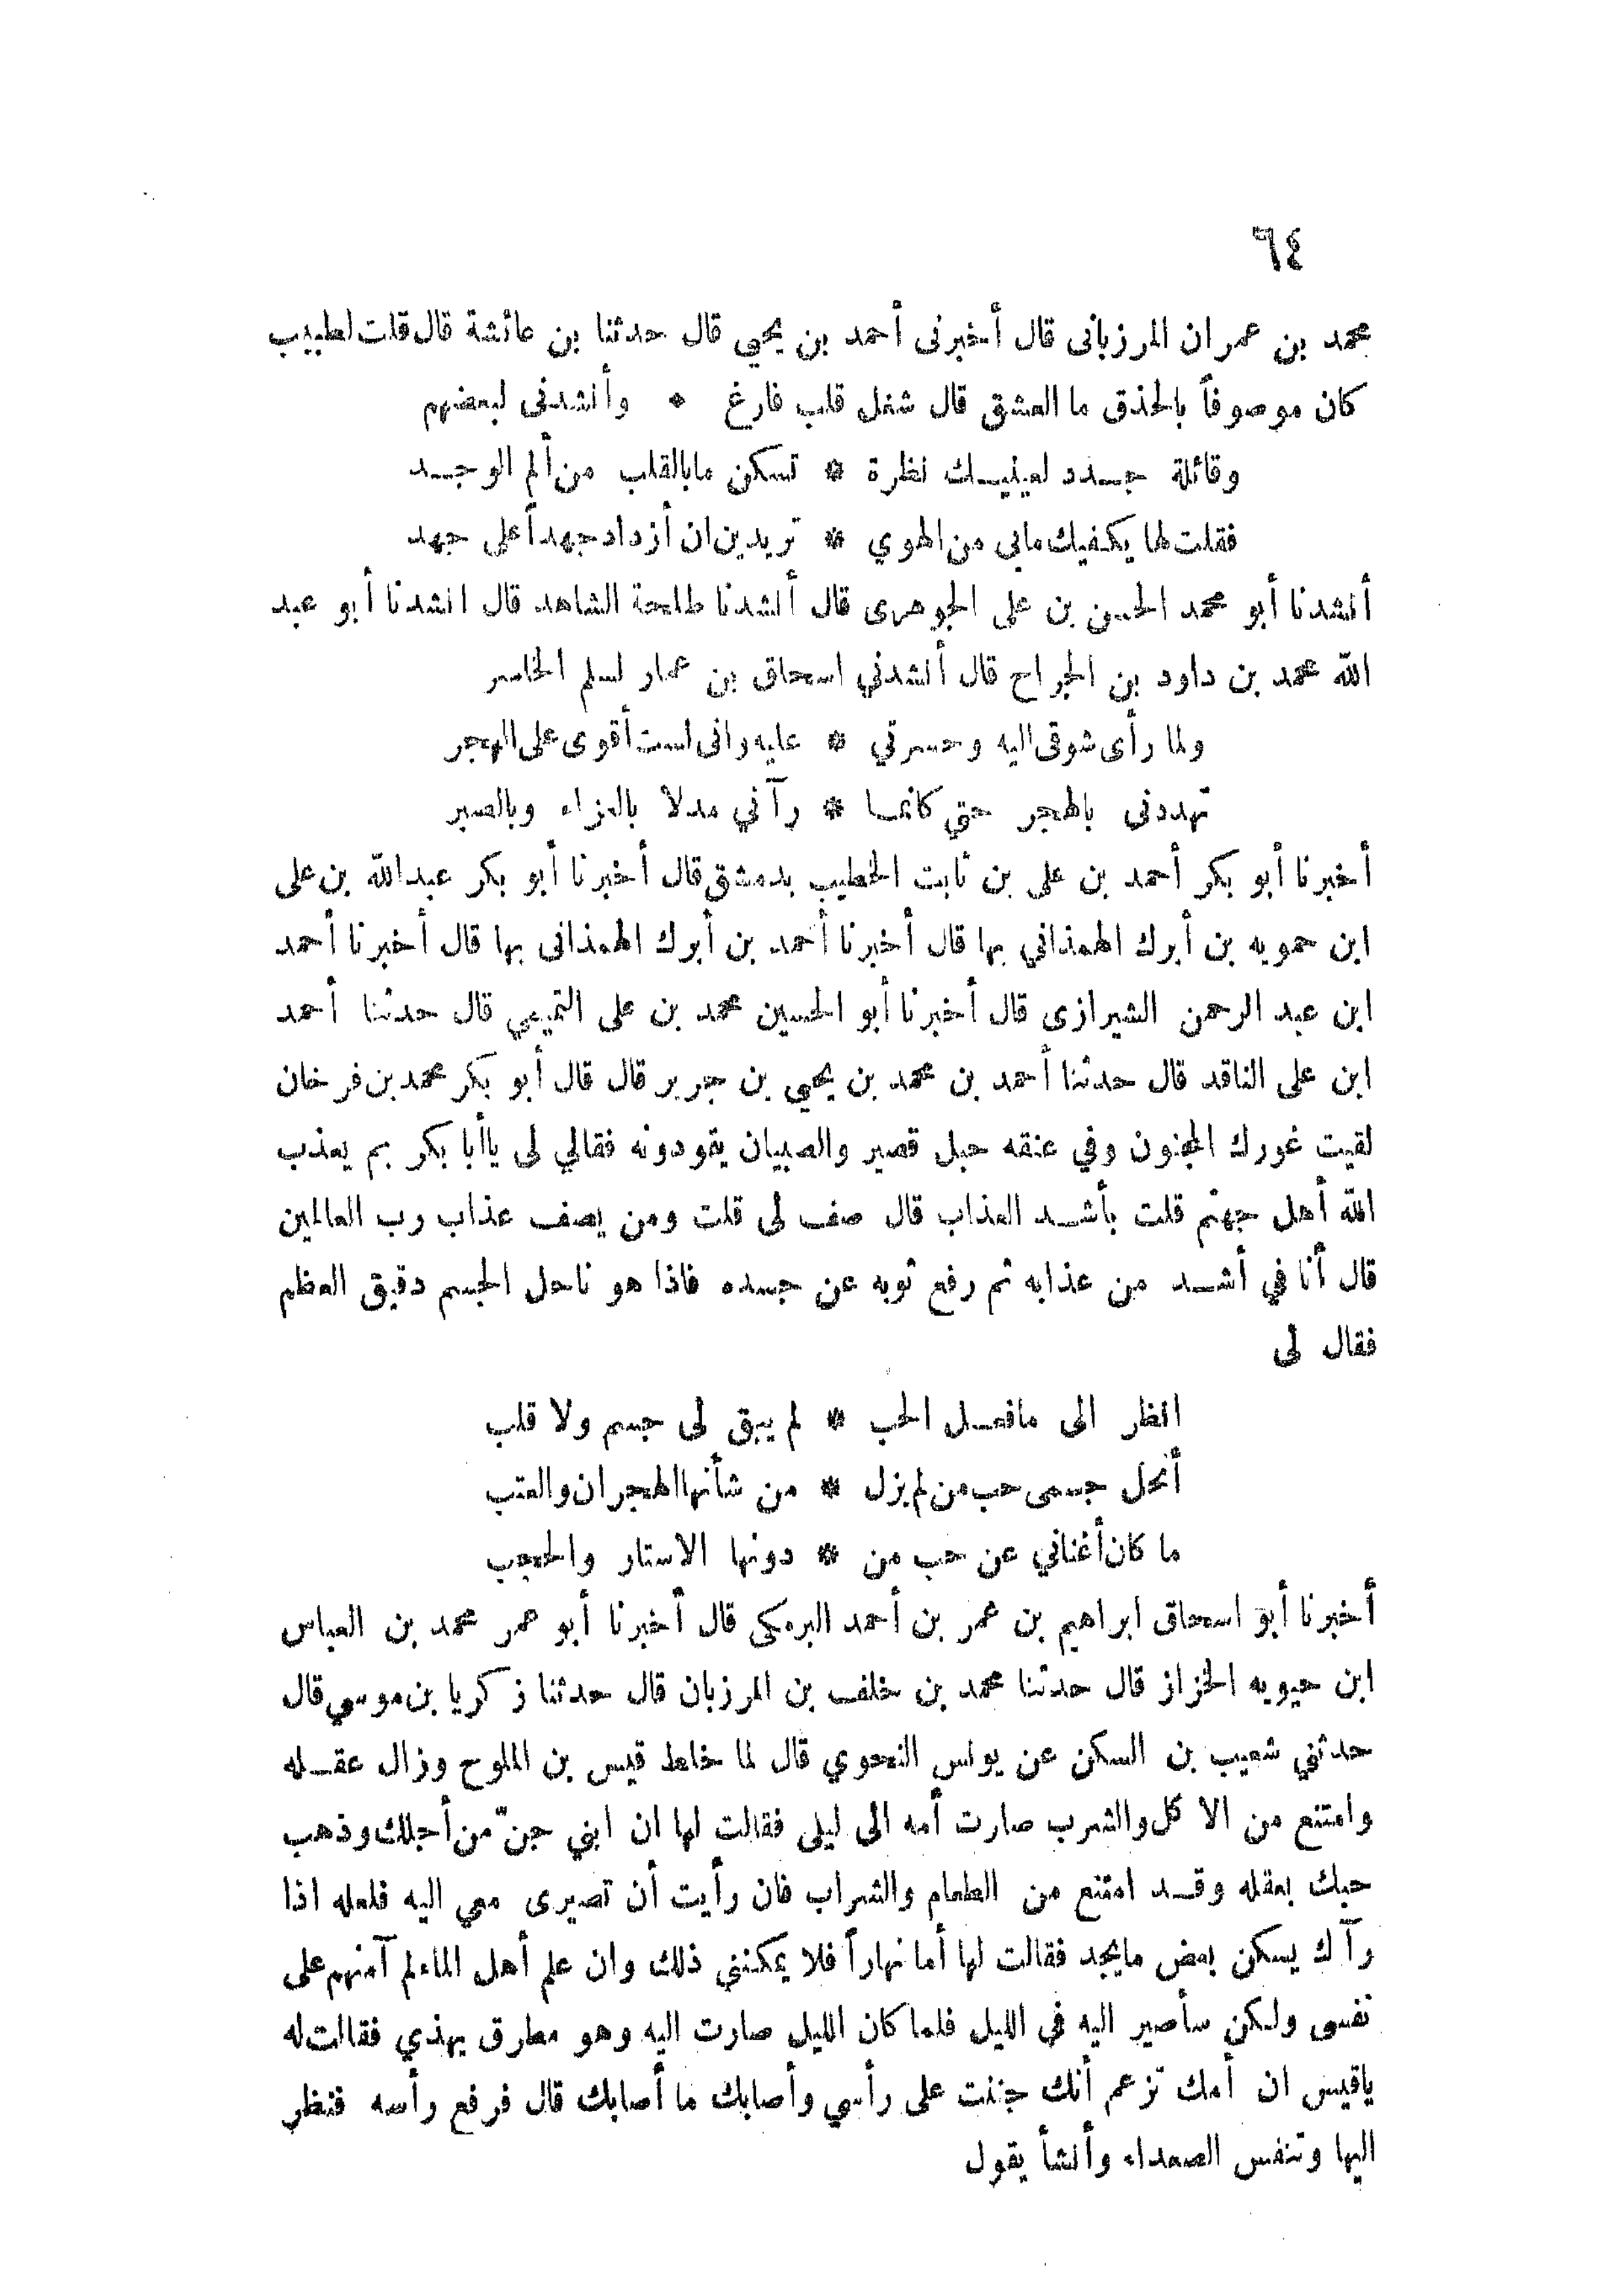 ٦٤
محمد بن عمران المرزبانى قال أخبرنى أحمد بن يحيي قال حدثنا بن عائشة قال قلت لطبيب
كان موصوفاً بالحذق ما العشق قال شغل قلب فارغ * وأنشدنى لبعضهم
وقائلة جدد لعينيك نظرة * تسكن مابالقلب من ألم الوجد
فقلت لها يكفيك مابى من الهوي * تريدين ان أزداد جهداً على جهد
أنشدنا أبو محمد الحسن بن على الجوهرى قال أنشدنا طلحة الشاهد قال انشدنا أبو عبد
الله محمد بن داود بن الجراح قال أنشدني اسحاق بن عمار لسلم الخاسر
ولما رأى شوقى اليه وحسرتي * عليه وانى لست أقوى على الهجر
تهددنى بالهجر حتي كانما * رآني مدلا بالعزاء وبالصبر
أخبرنا أبو بكر أحمد بن على بن ثابت الخطيب بدمشق قال أخبرنا أبو بكر عبد الله بن على
ابن حمويه بن أبرك الهمذاني بها قال أخبرنا أحمد بن أبرك الهمذانى بها قال أخبرنا أحمد
ابن عبد الرحمن الشيرازى قال أخبرنا أبو الحسين محمد بن على التميمي قال حدثنا أحمد
ابن على الناقد قال حدثنا أحمد بن محمد بن يحيي بن جرير قال قال أبو بكر محمد بن فرخان
لقيت غورك المجنون وفي عنقه حبل قصير والصبيان يقودونه فقالي لى ياأبا بكر بم يعذب
الله أهل جهنم قلت بأشد العذاب قال صف لى قلت ومن يصف عذاب رب العالمين
قال أنا في أشد من عذابه ثم رفع ثوبه عن جسده فاذا هو ناحل الجسم دقيق العظم
فقال لى
انظر الى مافعل الحب * لم يبق لى جسم ولا قلب
أنحل جسمى حب من لم يزل * من شأنها الهجران والعتب
ما كان أغناني عن حب من * دونها الاستار والحجب
أخبرنا أبو اسحاق ابراهيم بن عمر بن أحمد البرمكى قال أخبرنا أبو عمر محمد بن العباس
ابن حيويه الخزاز قال حدثنا محمد بن خلف بن المرزبان قال حدثنا زكريا بن موسي قال
حدثني شعيب بن السكن عن يونس النحوي قال لما خلط قيس بن الملوح وزال عقله
وامتنع من الاكل والشرب صارت أمه الى ليلى فقالت لها ان ابني جنّ من أجلك وذهب
حبك بعقله وقد امتنع من الطعام والشراب فان رأيت أن تصيرى معي اليه فلعله اذا
رآك يسكن بعض مايجد فقالت لها أما نهاراً فلا يمكنني ذلك وان علم أهل الماء لم آمنهم على
نفسى ولكن سأصير اليه في الليل فلما كان الليل صارت اليه وهو مطرق يهذي فقالت له
ياقيس ان أمك تزعم أنك جننت على رأسي وأصابك ما أصابك قال فرفع رأسه فنظر
اليها وتنفس الصعداء وأنشأ يقول